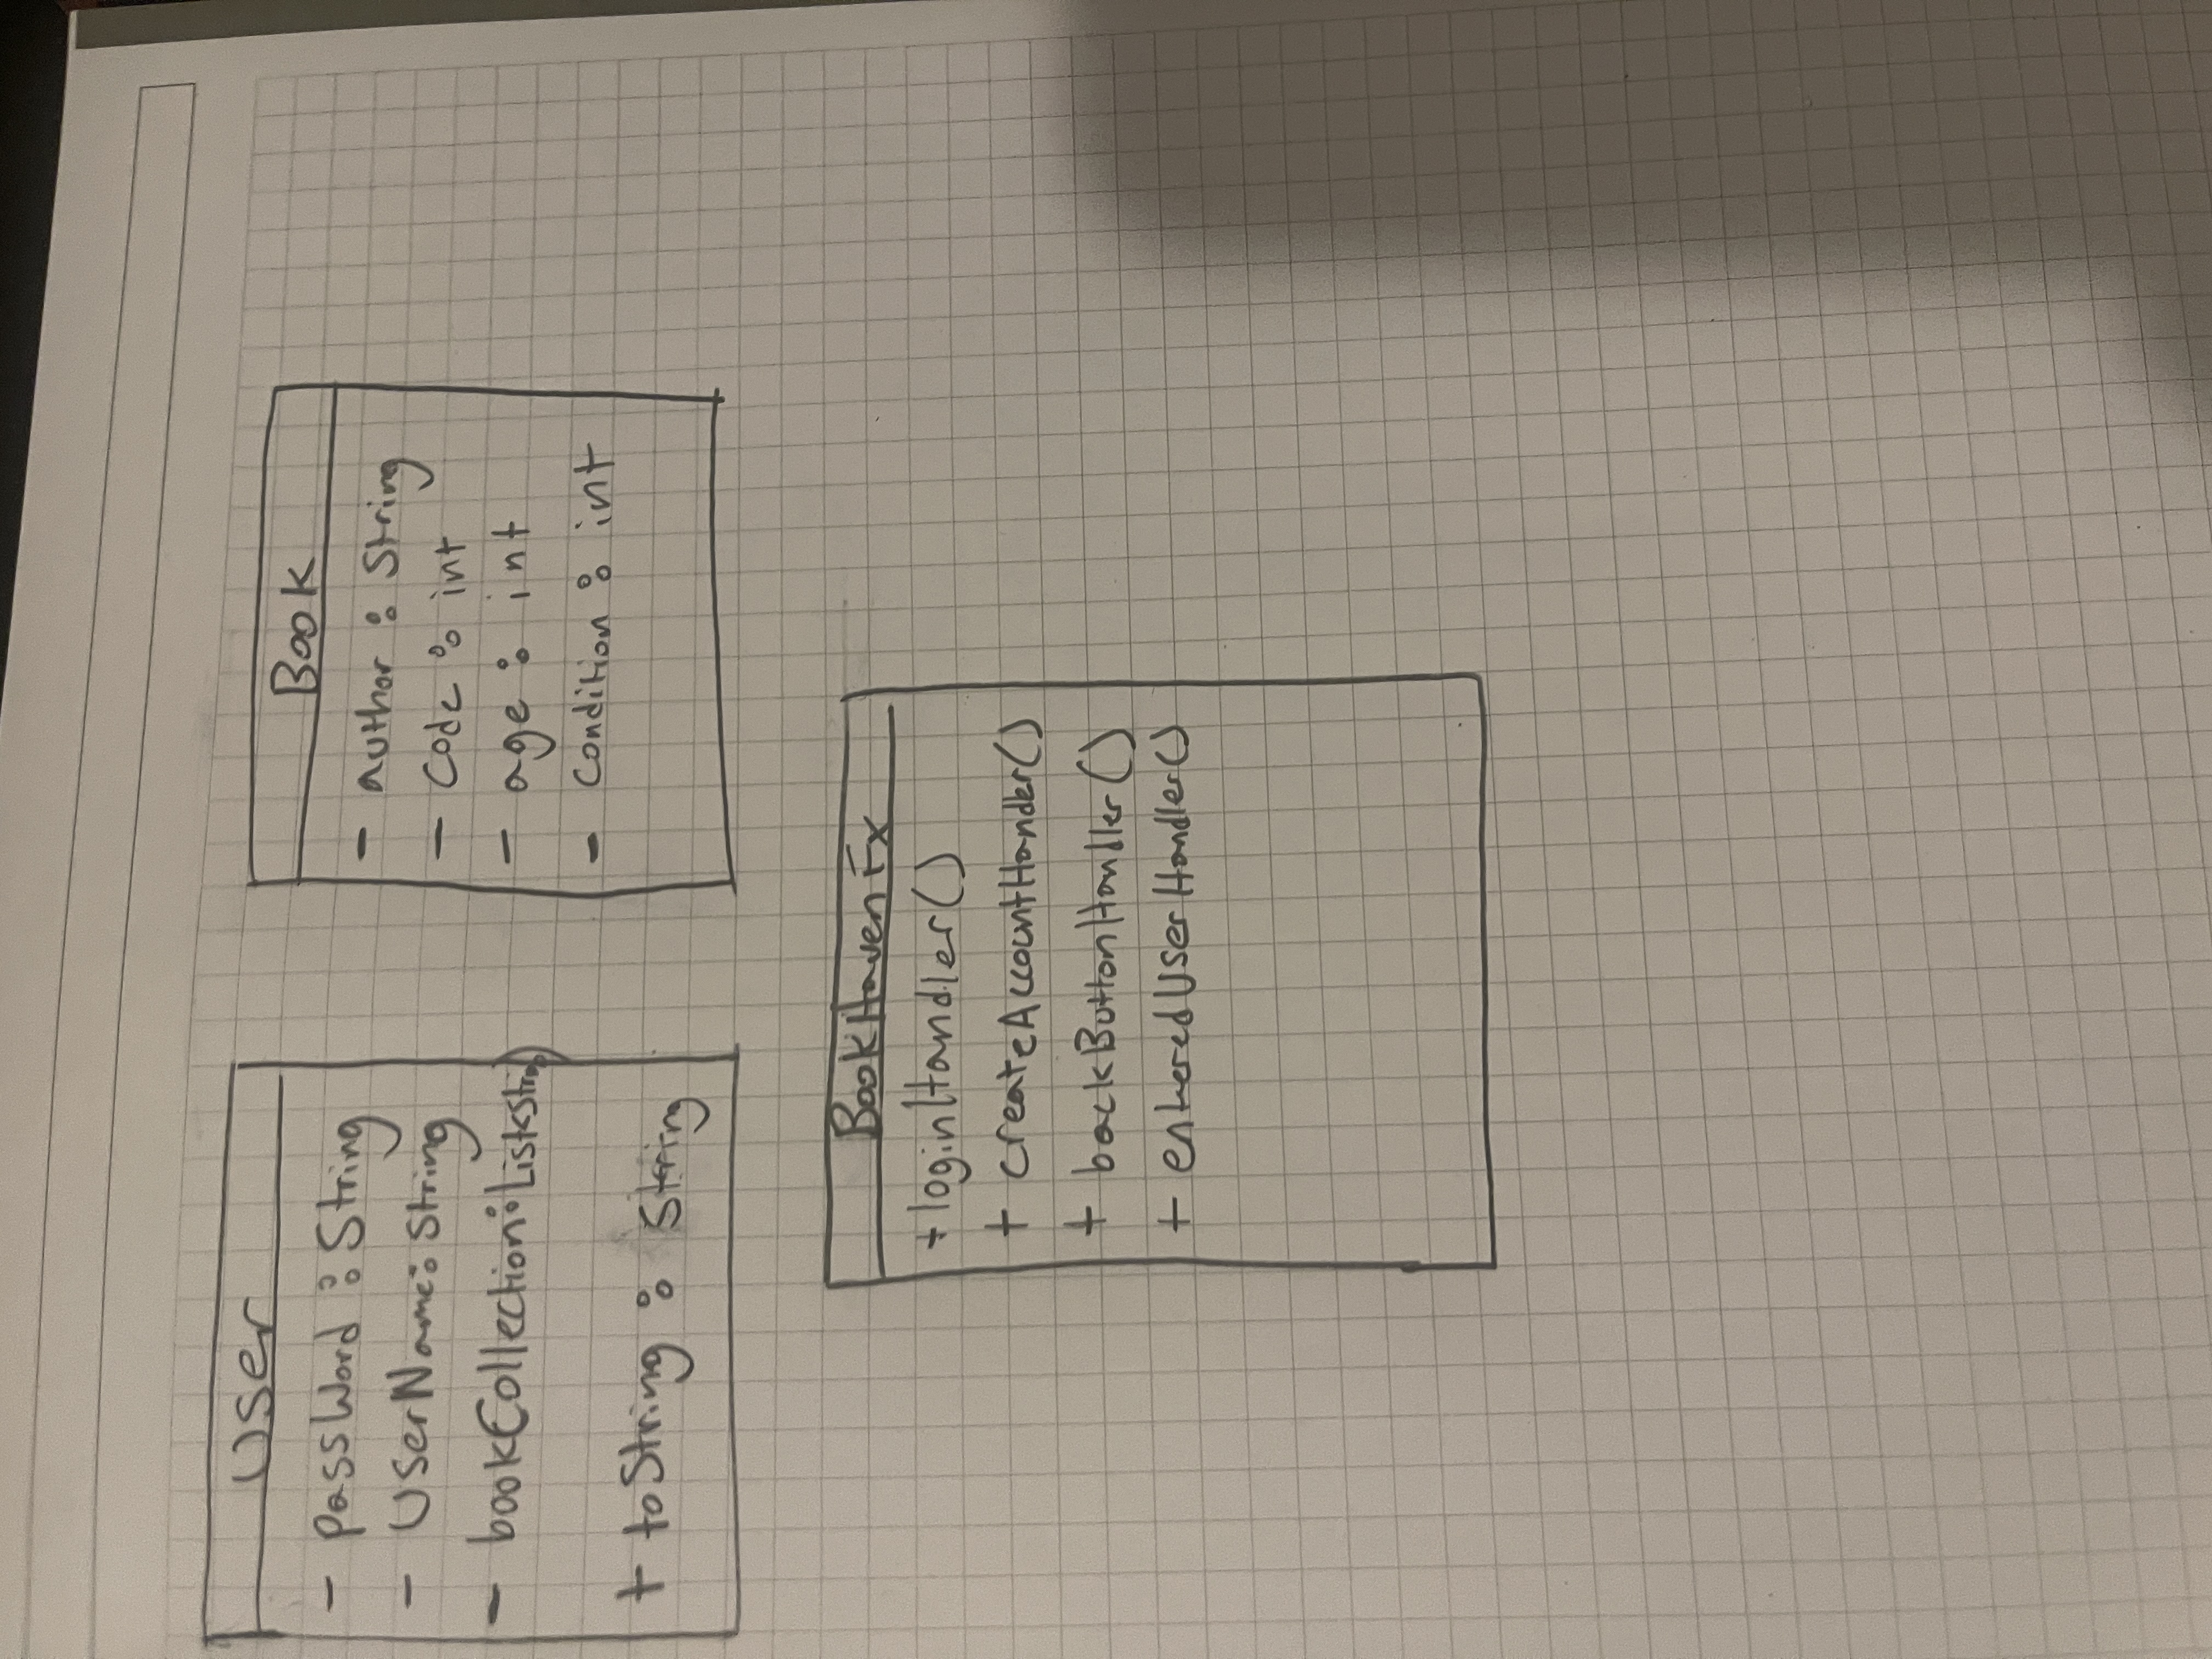 User
- passWord : String
- UserName: String
- bookCollection: List<String>
+ toString : String
Book
- author : String
- Code : int
- age : int
- Condition : int
BookHavenFx
+ loginHandler()
+ createAccountHander()
+ backButtonHandler()
+ enteredUserHandler()